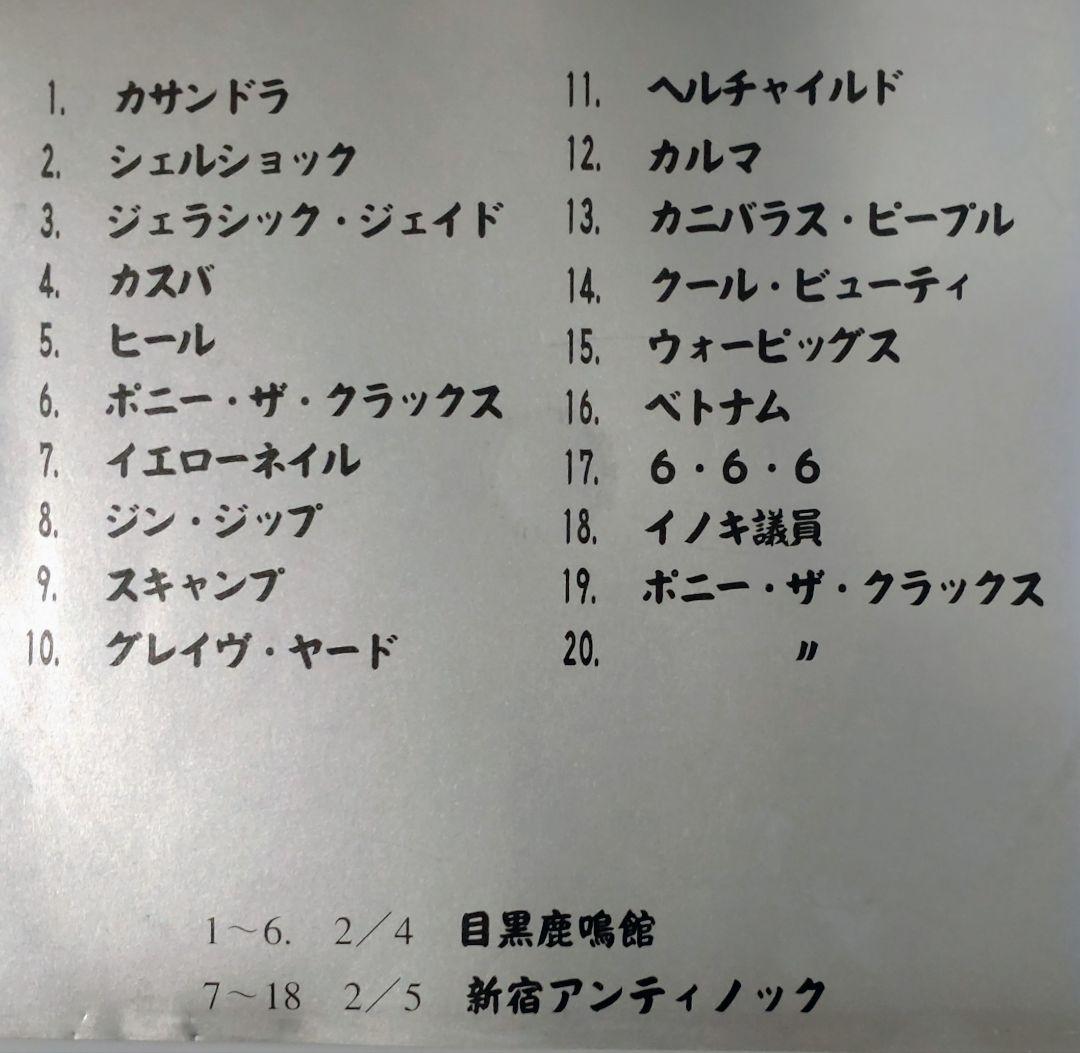 1. カサンドラ
2. シェルショック
3. ジェラシック・ジェイド
4. カスバ
5. ヒール
6. ポニー・ザ・クラックス
7. イエローネイル
8. ジン・ジップ
9. スキャンプ
10. グレイヴ・ヤード
11. ヘルチャイルド
12. カルマ
13. カニバラス・ピープル
14. クール・ビューティ
15. ウォーピッグス
16. ベトナム
17. 6・6・6
18. イノキ議員
19. ポニー・ザ・クラックス
20. 〃
1～6. 2／4 目黒鹿鳴館
7～18 2／5 新宿アンティノック